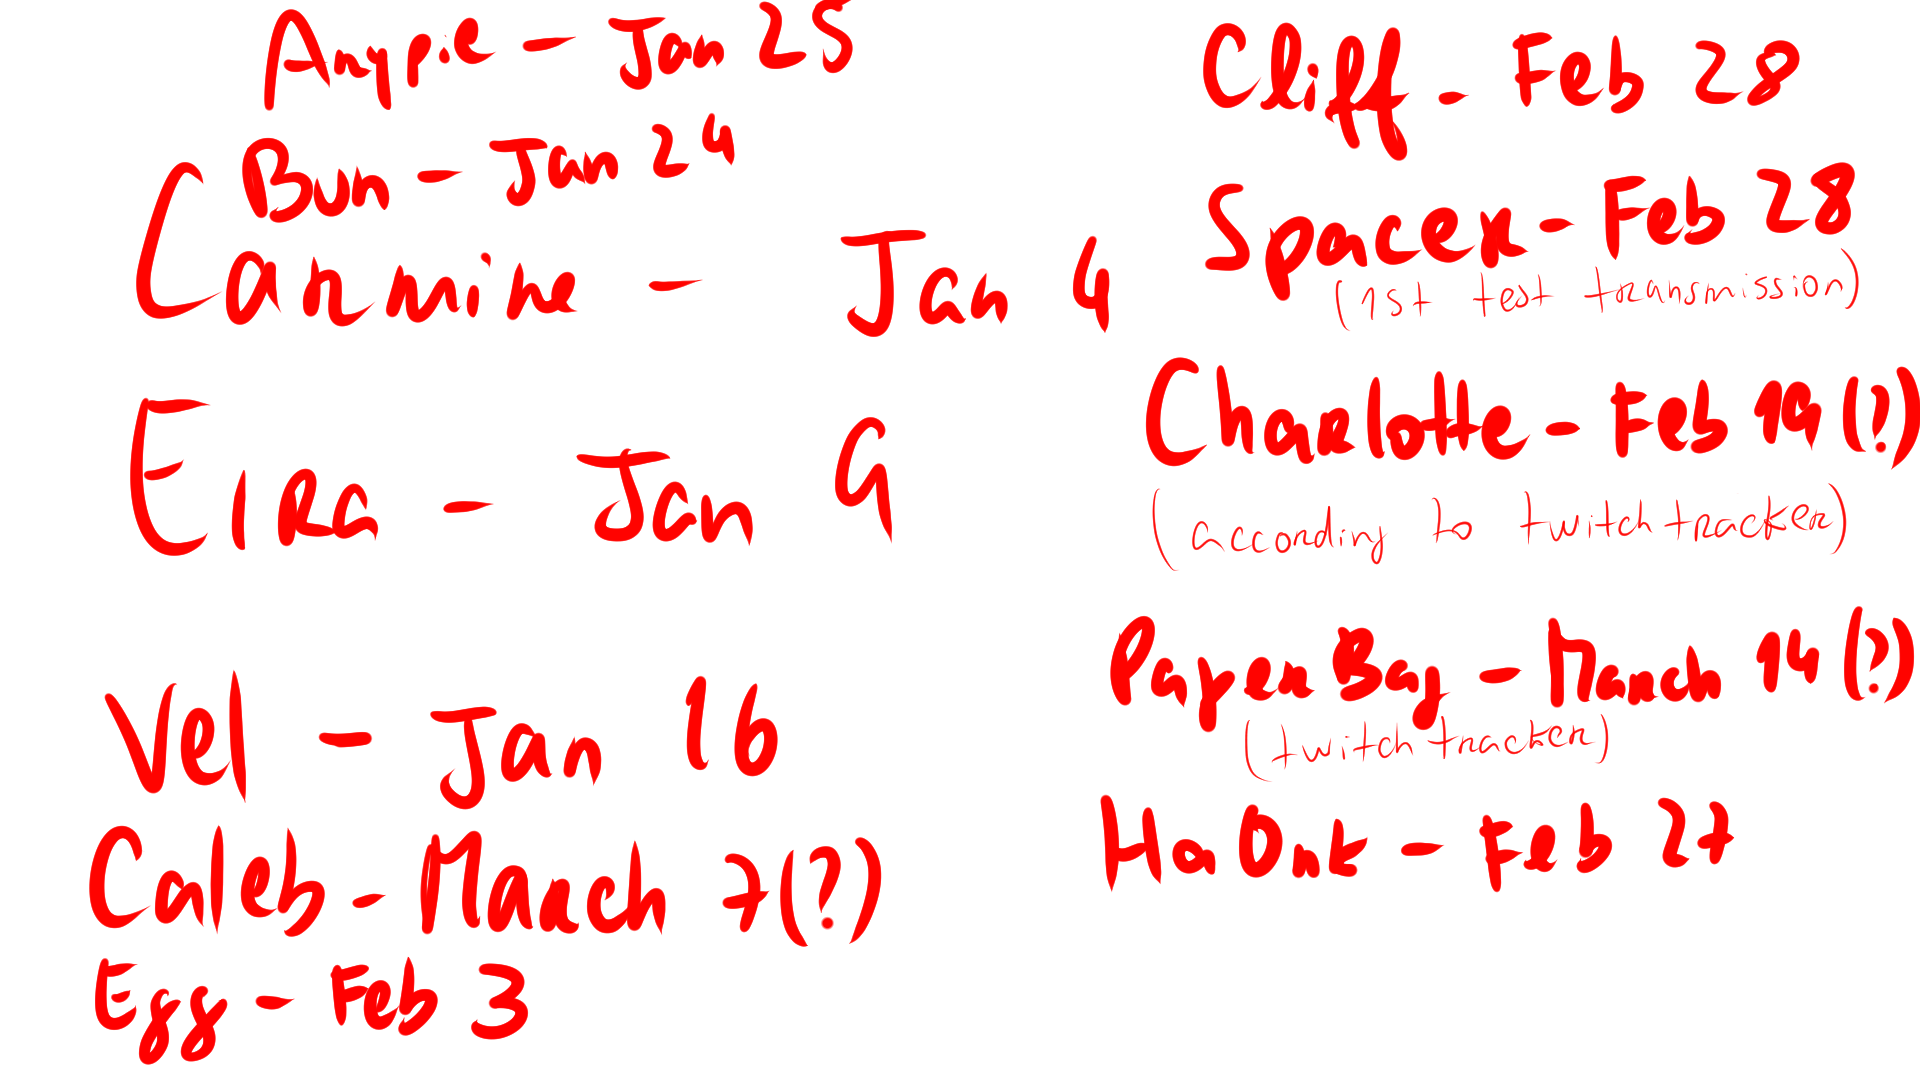 Anypie - Jan 25
Bun - Jan 24
Carmine - Jan 4
Eira - Jan 9
Vel - Jan 16
Caleb - March 7(?)
Egg - Feb 3
Cliff - Feb 28
Spacex - Feb 28
(1st test transmission)
Charlotte - Feb 19(?)
(according to twitchtracker)
PaperBag - March 14(?)
(twitchtracker)
HaOnk - Feb 27